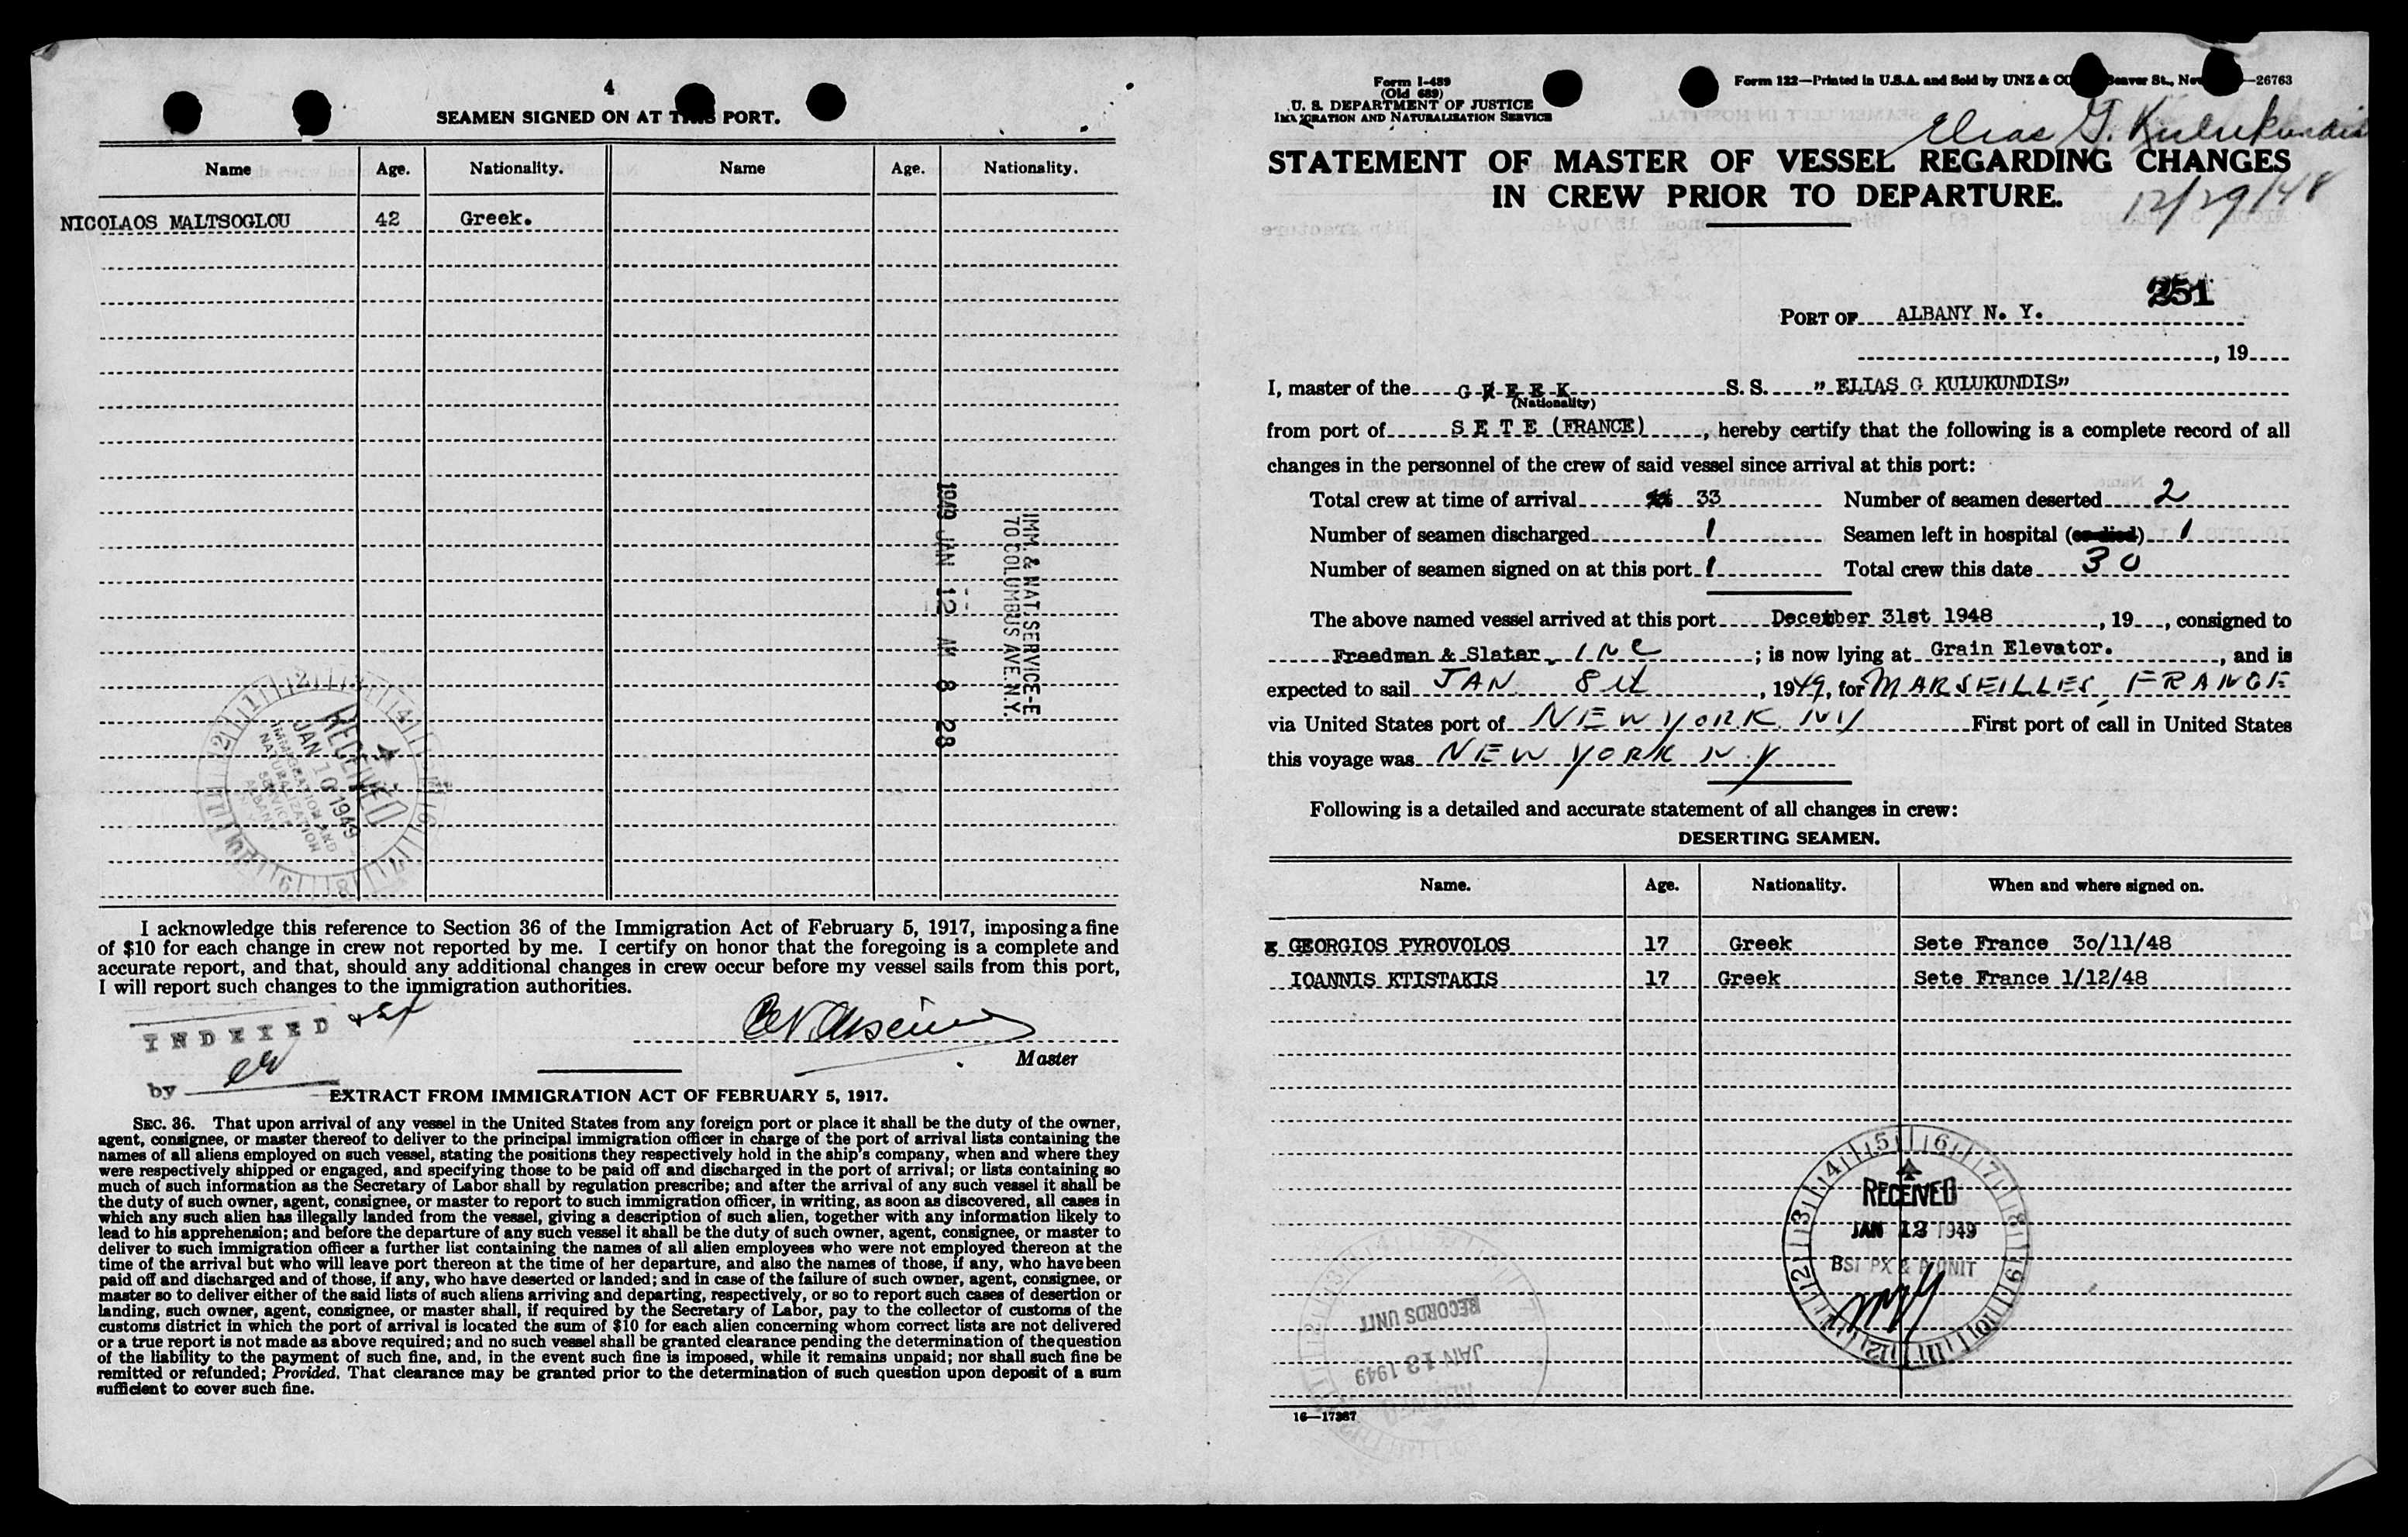 4
SEAMEN SIGNED ON AT THIS PORT.
Name Age. Nationality. Name Age. Nationality.
NICOLAOS MALTSOGLOU 42 Greek.
IMM. & NAT. SERVICE-E
70 COLUMBUS AVE. N.Y.
1949 JAN 12 AM 8 28
RECEIVED
JAN 10 1949
IMMIGRATION AND
NATURALIZATION
SERVICE
ALBANY
I acknowledge this reference to Section 36 of the Immigration Act of February 5, 1917, imposing a fine
of $10 for each change in crew not reported by me. I certify on honor that the foregoing is a complete and
accurate report, and that, should any additional changes in crew occur before my vessel sails from this port,
I will report such changes to the immigration authorities.
INDEXED
by
Master
EXTRACT FROM IMMIGRATION ACT OF FEBRUARY 5, 1917.
SEC. 36. That upon arrival of any vessel in the United States from any foreign port or place it shall be the duty of the owner,
agent, consignee, or master thereof to deliver to the principal immigration officer in charge of the port of arrival lists containing the
names of all aliens employed on such vessel, stating the positions they respectively hold in the ship's company, when and where they
were respectively shipped or engaged, and specifying those to be paid off and discharged in the port of arrival; or lists containing so
much of such information as the Secretary of Labor shall by regulation prescribe; and after the arrival of any such vessel it shall be
the duty of such owner, agent, consignee, or master to report to such immigration officer, in writing, as soon as discovered, all cases in
which any such alien has illegally landed from the vessel, giving a description of such alien, together with any information likely to
lead to his apprehension; and before the departure of any such vessel it shall be the duty of such owner, agent, consignee, or master to
deliver to such immigration officer a further list containing the names of all alien employees who were not employed thereon at the
time of the arrival but who will leave port thereon at the time of her departure, and also the names of those, if any, who have been
paid off and discharged and of those, if any, who have deserted or landed; and in case of the failure of such owner, agent, consignee, or
master so to deliver either of the said lists of such aliens arriving and departing, respectively, or so to report such cases of desertion or
landing, such owner, agent, consignee, or master shall, if required by the Secretary of Labor, pay to the collector of customs of the
customs district in which the port of arrival is located the sum of $10 for each alien concerning whom correct lists are not delivered
or a true report is not made as above required; and no such vessel shall be granted clearance pending the determination of the question
of the liability to the payment of such fine, and, in the event such fine is imposed, while it remains unpaid; nor shall such fine be
remitted or refunded; Provided, That clearance may be granted prior to the determination of such question upon deposit of a sum
sufficient to cover such fine.
Form I-489
(Old 689)
U. S. DEPARTMENT OF JUSTICE
IMMIGRATION AND NATURALIZATION SERVICE
Form 122—Printed in U.S.A. and Sold by UNZ & CO Beaver St., New —26763
Elias G. Kulukundis
STATEMENT OF MASTER OF VESSEL REGARDING CHANGES
IN CREW PRIOR TO DEPARTURE.
12/29/48
251
PORT OF ALBANY N. Y.
, 19
I, master of the GREEK S. S. "ELIAS G KULUKUNDIS"
(Nationality)
from port of SETE (FRANCE), hereby certify that the following is a complete record of all
changes in the personnel of the crew of said vessel since arrival at this port:
Total crew at time of arrival 33 Number of seamen deserted 2
Number of seamen discharged 1 Seamen left in hospital (or died) 1
Number of seamen signed on at this port 1 Total crew this date 30
The above named vessel arrived at this port December 31st 1948, 19, consigned to
Freedman & Slater, INC; is now lying at Grain Elevator., and is
expected to sail JAN 8th, 1949, for MARSEILLES, FRANCE
via United States port of NEW YORK NY First port of call in United States
this voyage was NEW YORK NY
Following is a detailed and accurate statement of all changes in crew:
DESERTING SEAMEN.
Name. Age. Nationality. When and where signed on.
GEORGIOS PYROVOLOS 17 Greek Sete France 30/11/48
IOANNIS KTISTAKIS 17 Greek Sete France 1/12/48
RECEIVED
JAN 13 1949
RECORDS UNIT
JAN 13 1949
RECEIVED
16—17387